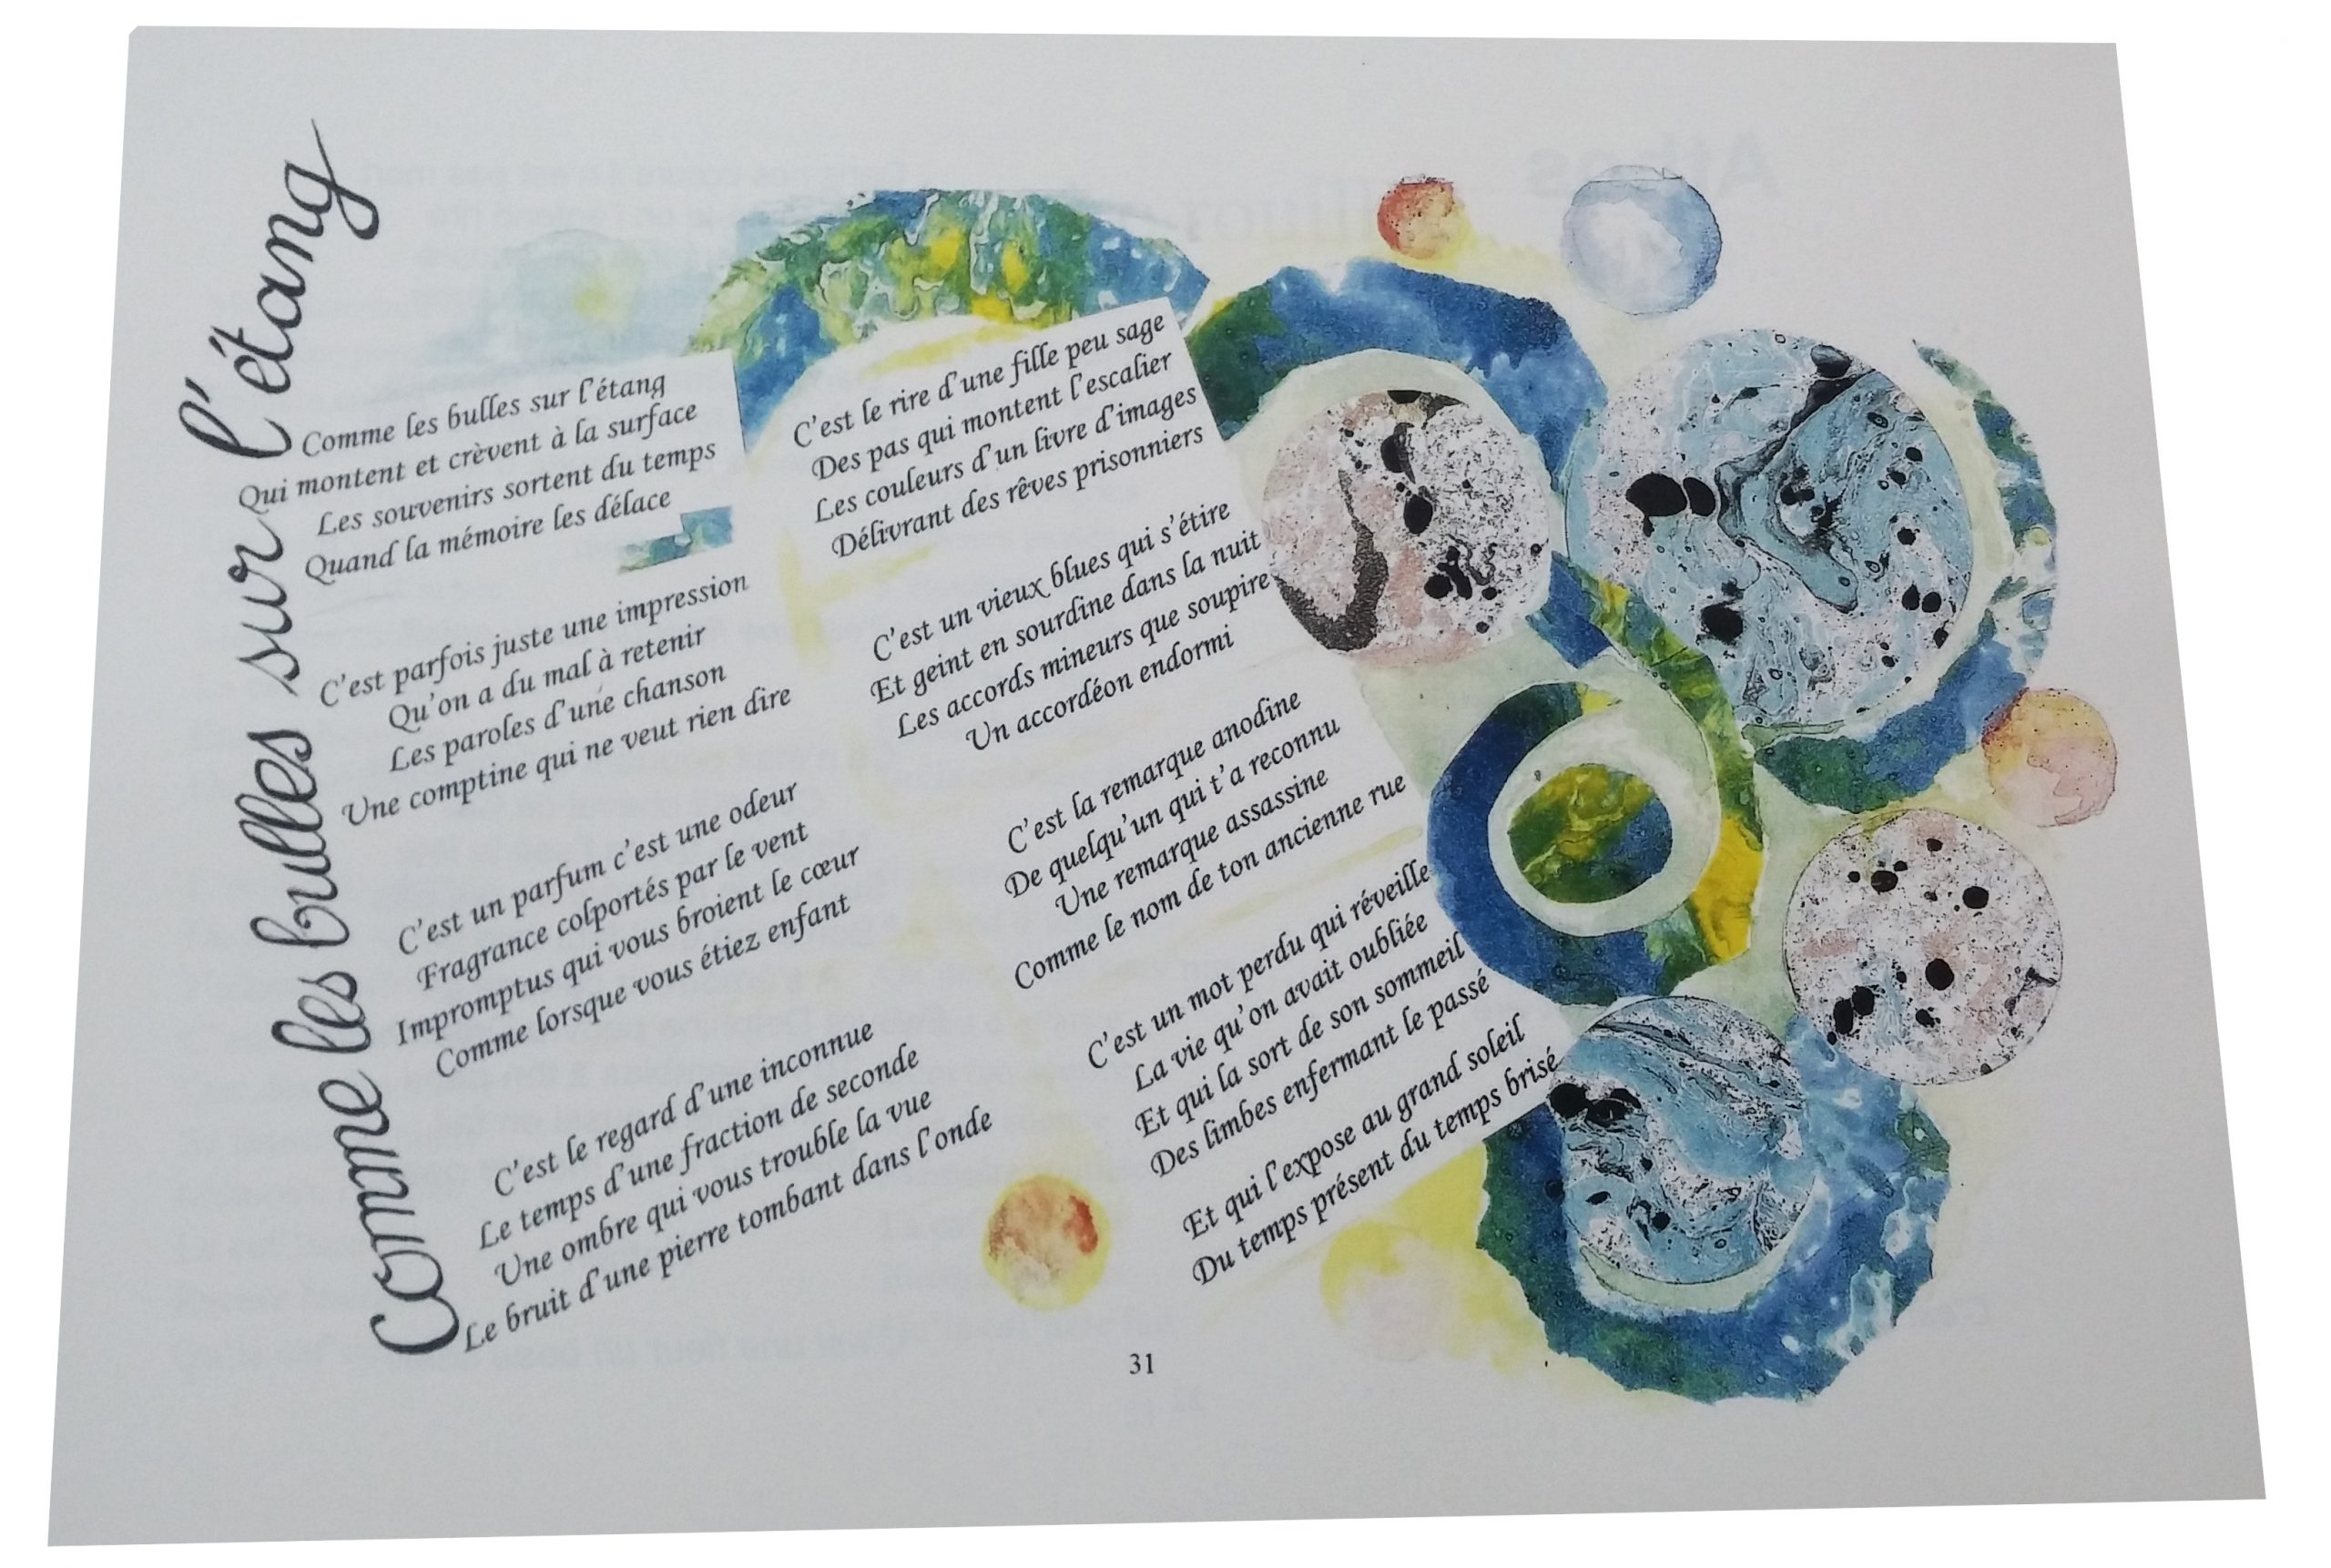 Comme les bulles sur l'étang
Comme les bulles sur l'étang
Qui montent et crèvent à la surface
Les souvenirs sortent du temps
Quand la mémoire les délace
C'est parfois juste une impression
Qu'on a du mal à retenir
Les paroles d'une chanson
Une comptine qui ne veut rien dire
C'est un parfum c'est une odeur
Fragrance colportés par le vent
Impromptus qui vous broient le cœur
Comme lorsque vous étiez enfant
C'est le regard d'une inconnue
Le temps d'une fraction de seconde
Une ombre qui vous trouble la vue
Le bruit d'une pierre tombant dans l'onde
C'est le rire d'une fille peu sage
Des pas qui montent l'escalier
Les couleurs d'un livre d'images
Délivrant des rêves prisonniers
C'est un vieux blues qui s'étire
Et geint en sourdine dans la nuit
Les accords mineurs que soupire
Un accordéon endormi
C'est la remarque anodine
De quelqu'un qui t'a reconnu
Une remarque assassine
Comme le nom de ton ancienne rue
C'est un mot perdu qui réveille
La vie qu'on avait oubliée
Et qui la sort de son sommeil
Des limbes enfermant le passé
Et qui l'expose au grand soleil
Du temps présent du temps brisé
31